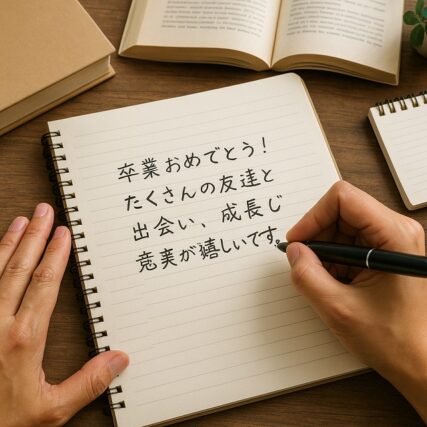 卒業おめでとう！
たくさんの友達と
出会い、成長じ
が嬉しいです。